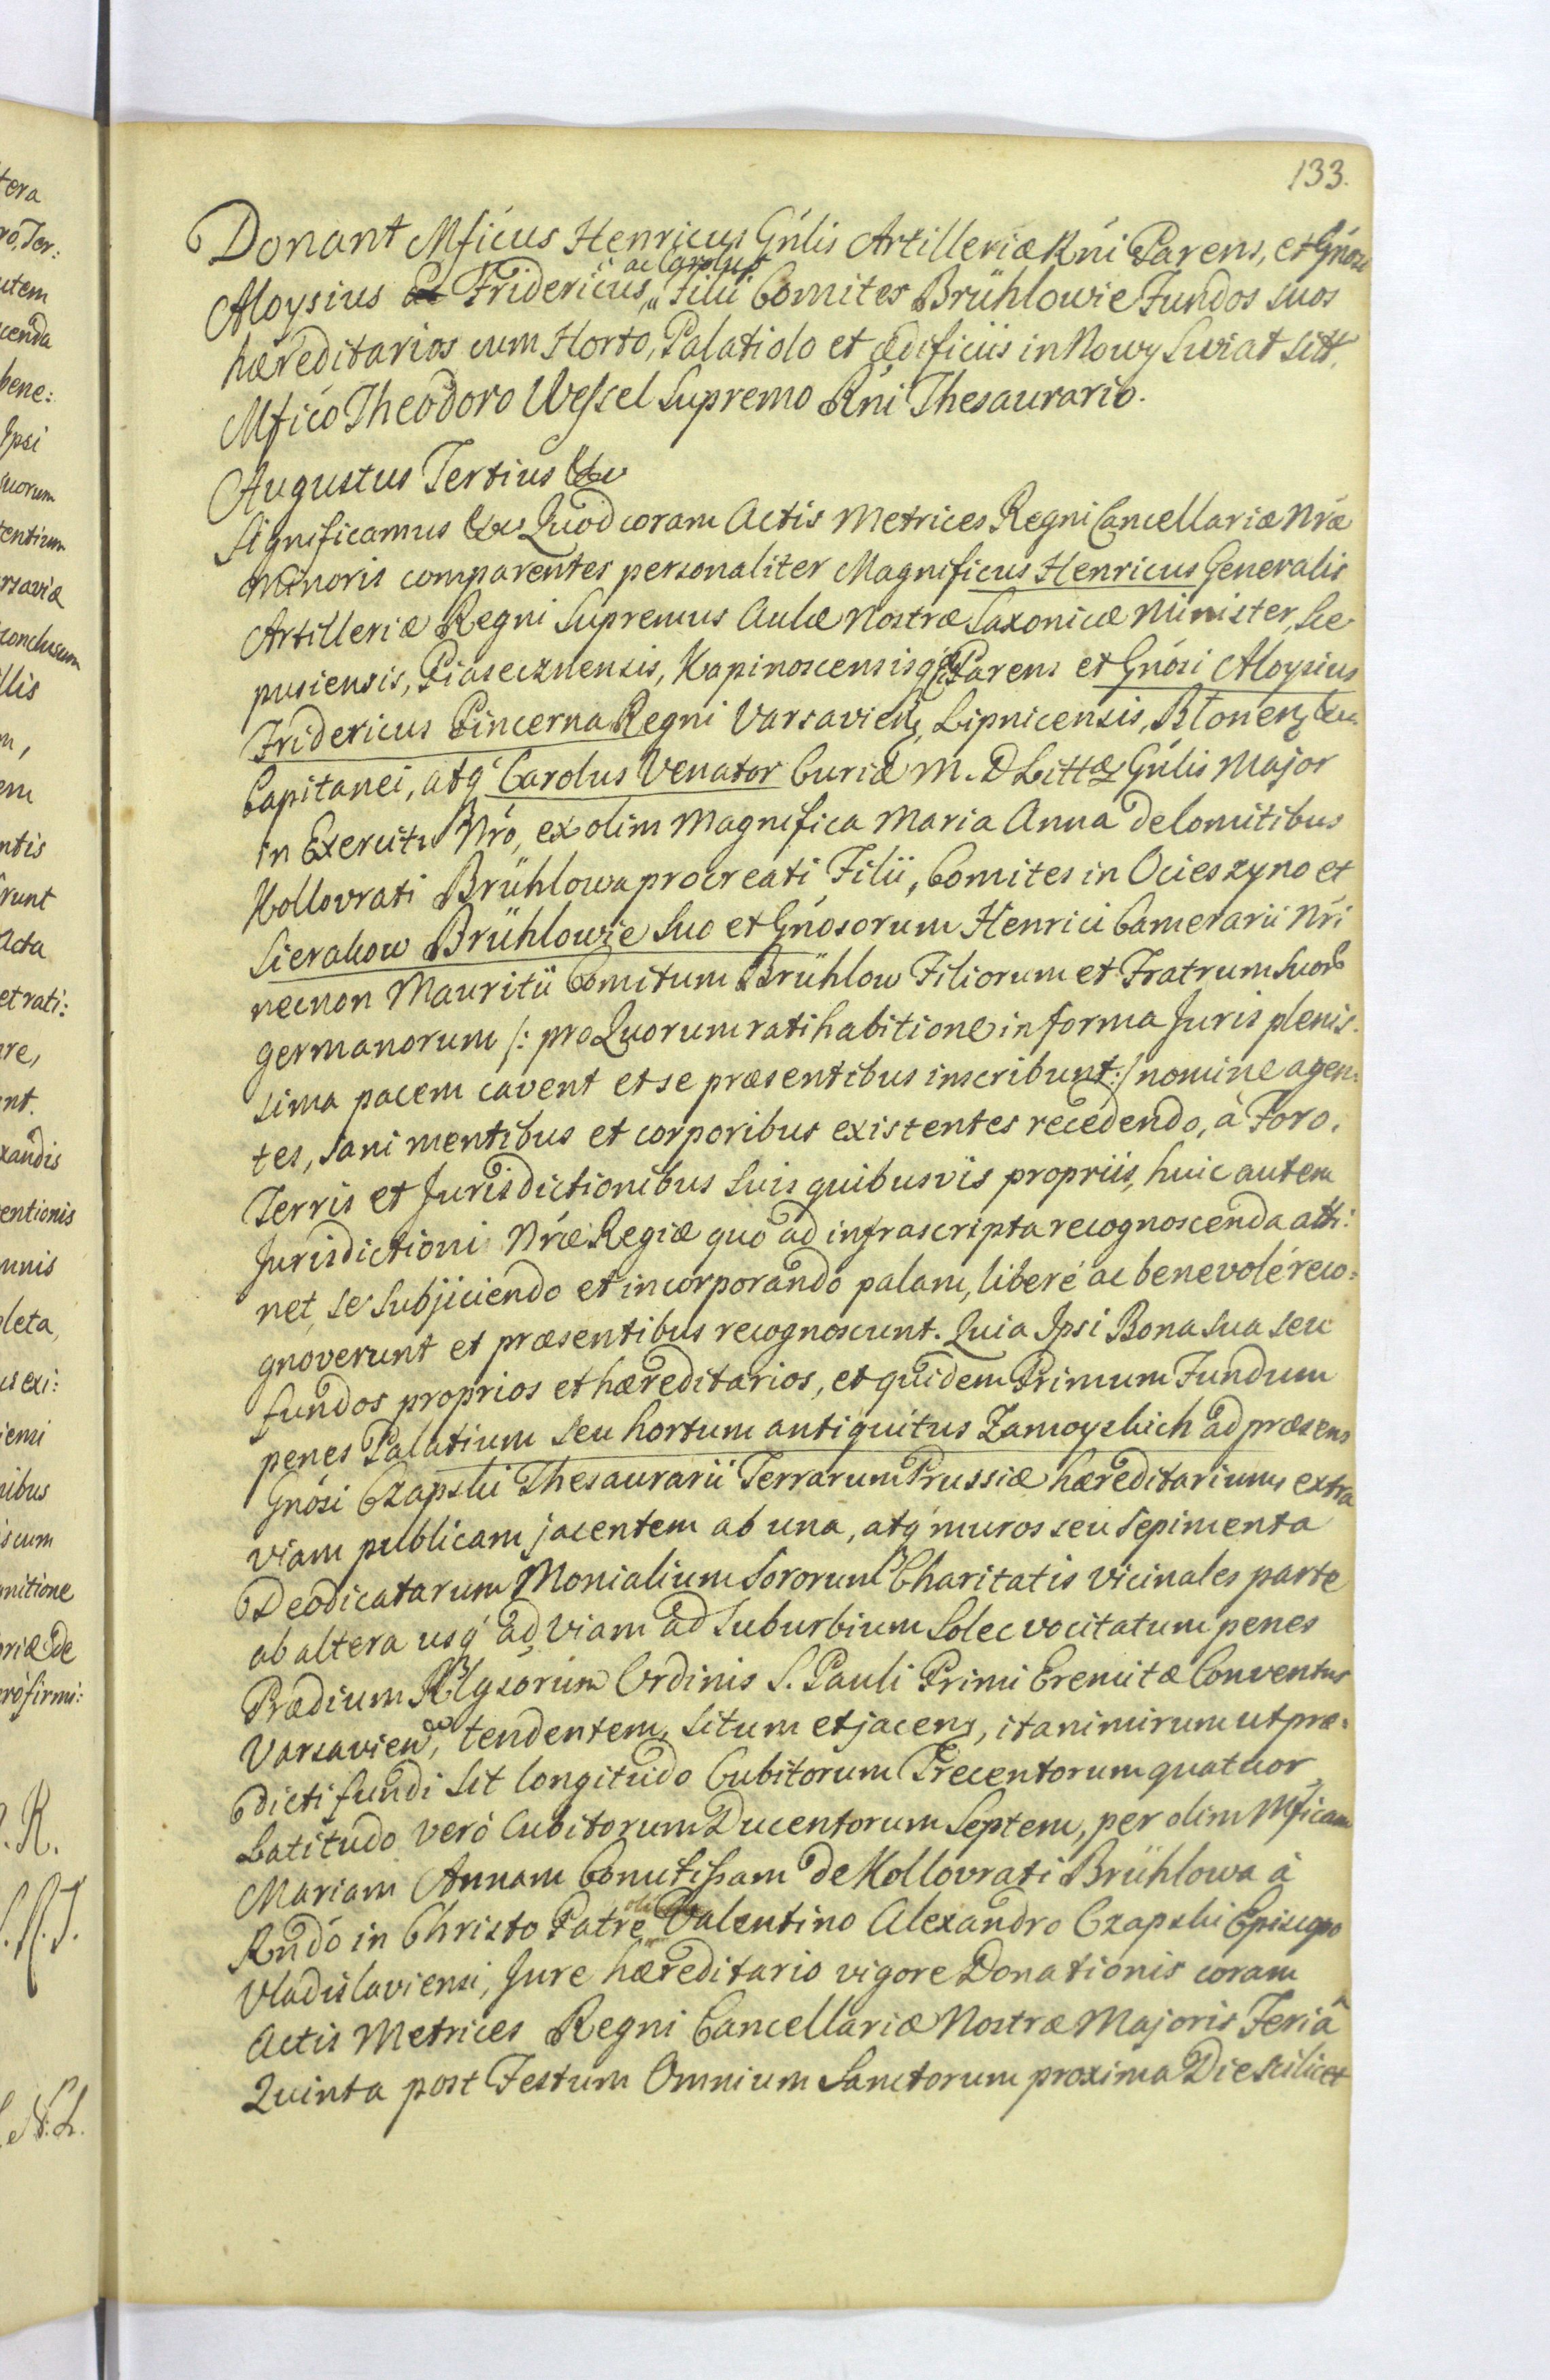 133.
Donant Mficus Henricus Gńlis Artilleriæ Rńi Parens, et Gńosi
ac Carolus
Aloysius Fridericus, Filii Comites Brühlowie Fundos suos
hæreditarios cum Horto, Palatiolo et ædificiis in Nowy Swiat sitt.
Mfico Theodoro Wessel Supremo Rńi Thesaurario.
Augustus Tertius &c
Significamus &c Quod coram Actis Metrices Regni Cancellariæ Nræ
Minoris comparentes personaliter Magnificus Henricus Generalis
Artilleriæ Regni Supremus Aulæ Nostræ Saxonicæ Minister, Sce-
pusiensis, Piasecznensis, Kapinoscensisq́ Parens et Gńosi Aloysius
Fridericus Pincerna Regni Varsavien, Lipnicensis, Blonen &c
Capitanei, atq́ Carolus Venator Curiæ M. D Litt Gńlis Major
in Exercitu Nro, ex olim Magnifica Maria Anna de Comitibus
Kollovrati Brühlowa procreati Filii, Comites in Ocieszyno et
Sierakow Brühlowie suo et Gńosorum Henrici Camerarii Nri
necnon Mauritii Comitum Brühlow Filiorum et Fratrum suor
germanorum /: pro Quorum ratihabitione in forma Juris plenis-
sima pacem cavent et se præsentibus inscribunt :/ nomine agen:
tes, sani mentibus et corporibus existentes recedendo, à Foro,
Terris et Jurisdictionibus suis quibusvis propriis, huic autem
Jurisdictioni Nræ Regiæ quo ad infrascripta recognoscenda atti:
net, se subjiciendo et incorporando palam, liberé ac benevolé reco:
gnoverunt et præsentibus recognoscunt. Quia Ipsi Bona sua seu
fundos proprios et hæreditarios, et quidem Primum Fundum
penes Palatium seu hortum antiquitus Zamoyskich ad præsens
Gńosi Czapski Thesaurarii Terrarum Prussiæ hæreditarium extra
viam publicam jacentem ab una, atq́ muros seu sepimenta
Deodicatarum Monialium Sororum Charitatis vicinales parte
ab altera usq́ ad viam ad suburbium Solec vocitatum penes
Prædium Rlgsorum Ordinis S. Pauli Primi Eremitæ Conventus
Varsavien, tendentem, situm et jacens, ita nimirum ut præ-
dicti fundi sit longitudo Cubitorum Trecentorum quatuor
Latitudo veró Cubitorum Ducentorum Septem, per olim Mficam
Mariam Annam Comitissam de Kollovrati Brühlowa à
Rndo in Christo Patre olim Valentino Alexandro Czapski Episcopo
Vladislaviensi, Jure hæreditario vigore Donationis coram
Actis Metrices Regni Cancellariæ Nostræ Majoris Feriâ
Quinta post Festum Omnium Sanctorum proxima Die scilicet